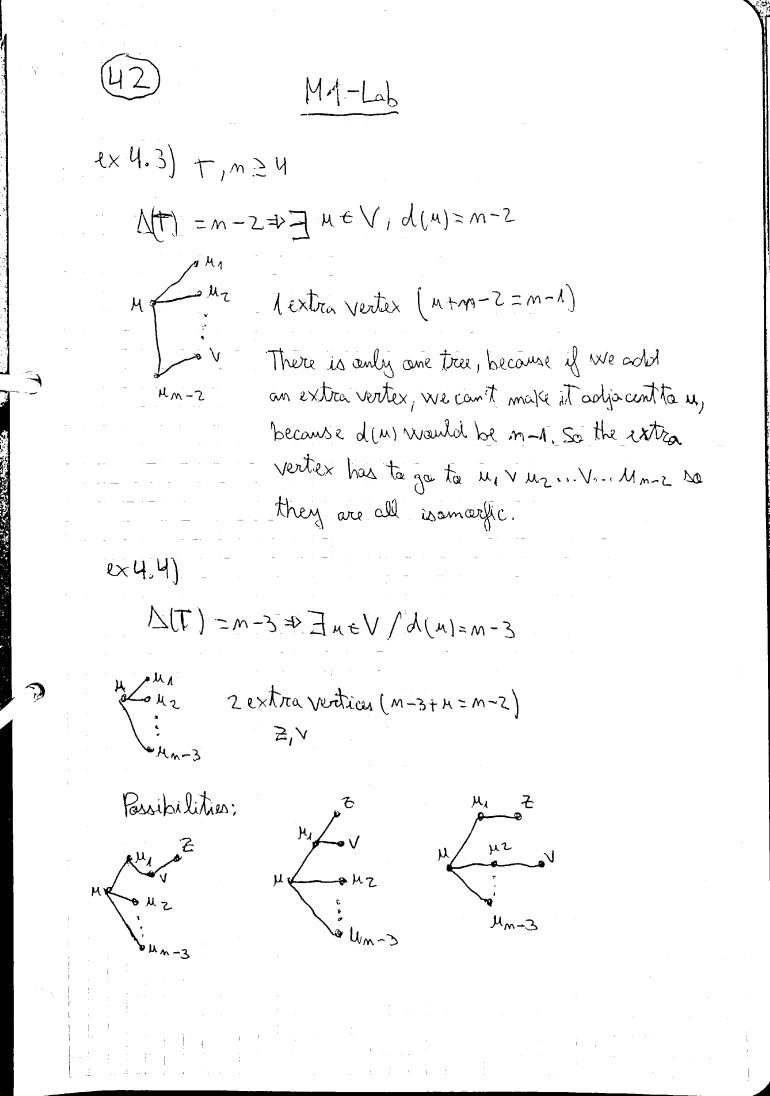 42
M1-Lab
ex 4.3) T, n ≥ 4
Δ(T) = n-2 ⇒ ∃ u ∈ V, d(u) = n-2
u u1 u2 v un-2
1 extra vertex (u+n-2 = n-1)
There is only one tree, because if we add
an extra vertex, we can't make it adjacent to u,
because d(u) would be n-1. So the extra
vertex has to go to u1 ∨ u2 ... ∨ ... un-2 so
they are all isomorfic.
ex 4.4)
Δ(T) = n-3 ⇒ ∃ u ∈ V / d(u) = n-3
u u1 u2 un-3
2 extra vertices (n-3+u = n-2)
z, v
Possibilities:
u u1 z v u2 un-3
z u1 v u u2 un-3
u1 z u u2 v un-3